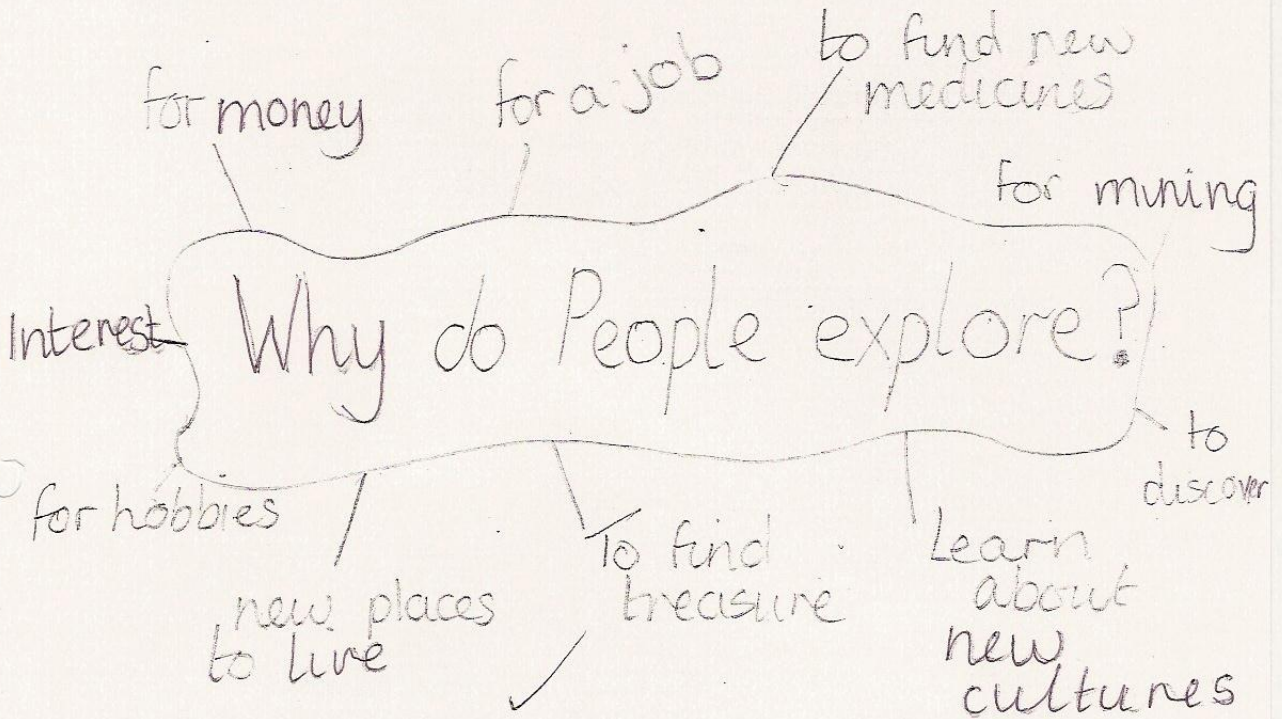 for money
for a job
to find new
medicines
for mining
Interest
Why do People explore?
to
discover
for hobbies
new places
to live
To find
treasure
Learn
about
new
cultures